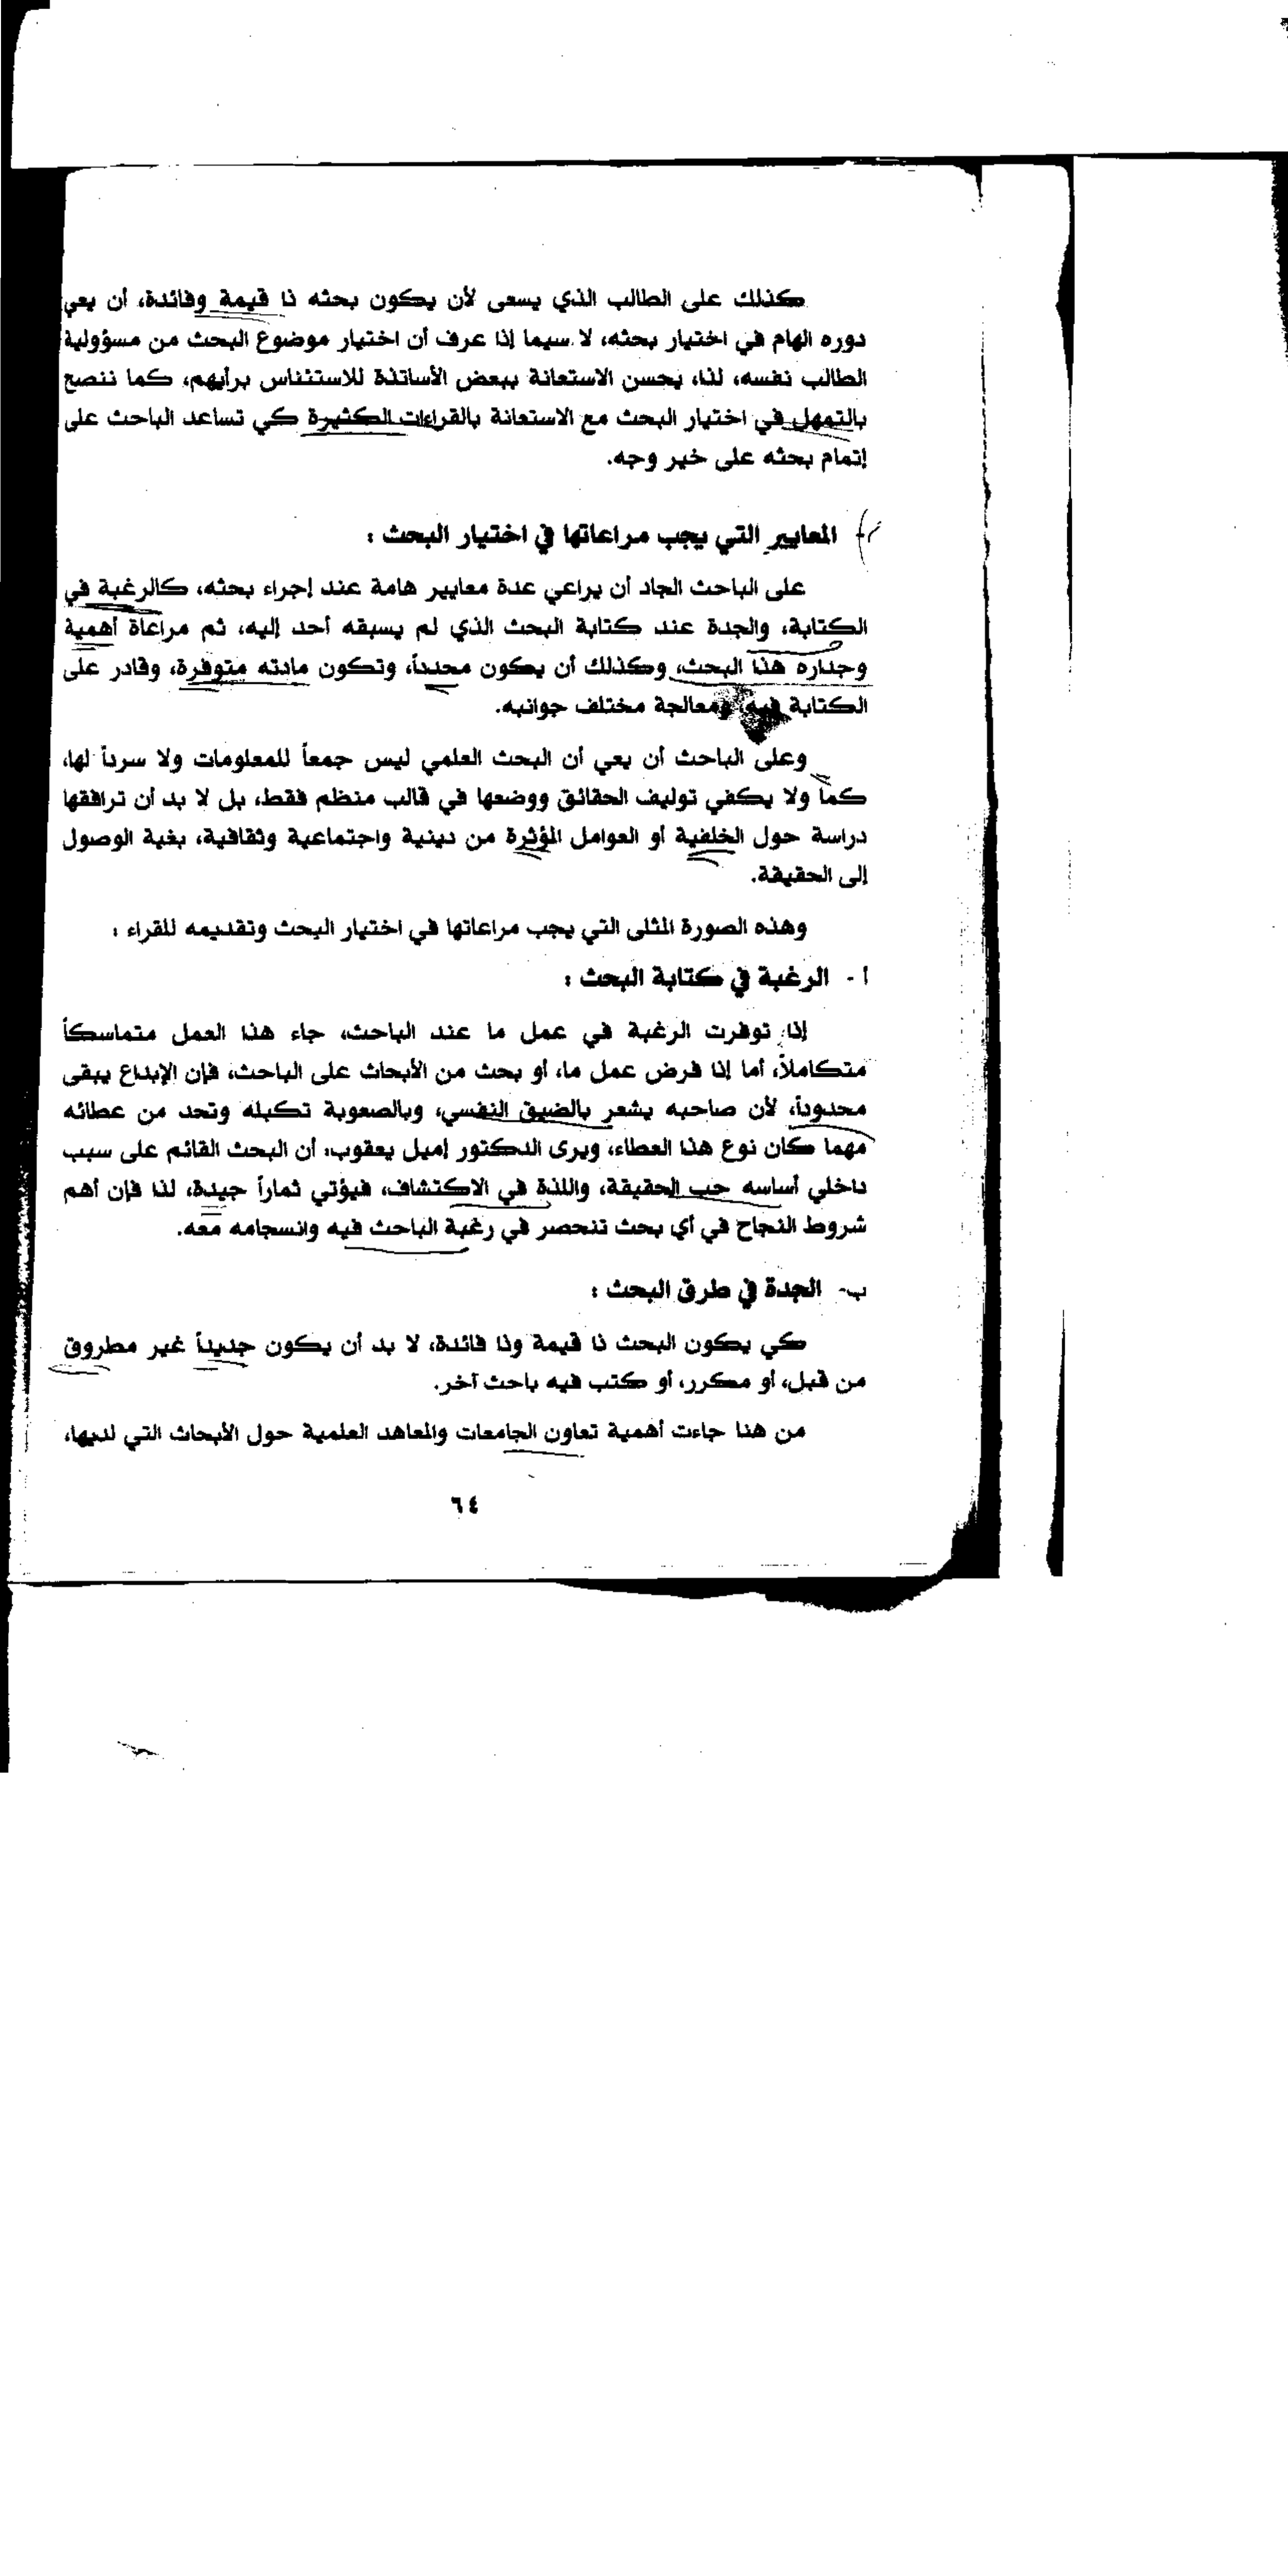 كذلك على الطالب الذي يسعى لأن يكون بحثه ذا قيمة وفائدة، أن يعي
دوره الهام في اختيار بحثه، لا سيما إذا عرف أن اختيار موضوع البحث من مسؤولية
الطالب نفسه، لذا، يحسن الاستعانة ببعض الأساتذة للاستئناس برأيهم، كما ننصح
بالتمهل في اختيار البحث مع الاستعانة بالقراءات الكثيرة كي تساعد الباحث على
إتمام بحثه على خير وجه.
المعايير التي يجب مراعاتها في اختيار البحث :
على الباحث الجاد أن يراعي عدة معايير هامة عند إجراء بحثه، كالرغبة في
الكتابة، والجدة عند كتابة البحث الذي لم يسبقه أحد إليه، ثم مراعاة أهمية
وجداره هذا البحث، وكذلك أن يكون محدداً، وتكون مادته متوفرة، وقادر على
الكتابة فيه، ومعالجة مختلف جوانبه.
وعلى الباحث أن يعي أن البحث العلمي ليس جمعاً للمعلومات ولا سرداً لها،
كما ولا يكفي توليف الحقائق ووضعها في قالب منظم فقط، بل لا بد أن ترافقها
دراسة حول الخلفية أو العوامل المؤثرة من دينية واجتماعية وثقافية، بغية الوصول
إلى الحقيقة.
وهذه الصورة المثلى التي يجب مراعاتها في اختيار البحث وتقديمه للقراء :
أ - الرغبة في كتابة البحث :
إذا توفرت الرغبة في عمل ما عند الباحث، جاء هذا العمل متماسكاً
متكاملاً، أما إذا فرض عمل ما، أو بحث من الأبحاث على الباحث، فإن الإبداع يبقى
محدوداً، لأن صاحبه يشعر بالضيق النفسي، وبالصعوبة تكبله وتحد من عطائه
مهما كان نوع هذا العطاء، ويرى الدكتور إميل يعقوب: أن البحث القائم على سبب
داخلي أساسه حب الحقيقة، واللذة في الاكتشاف، فيؤتي ثماراً جيدة، لذا فإن أهم
شروط النجاح في أي بحث تنحصر في رغبة الباحث فيه وانسجامه معه.
ب- الجدة في طرق البحث :
كي يكون البحث ذا قيمة وذا فائدة، لا بد أن يكون جديداً غير مطروق
من قبل، أو مكرر، أو كتب فيه باحث آخر.
من هنا جاءت أهمية تعاون الجامعات والمعاهد العلمية حول الأبحاث التي لديها،
٦٤